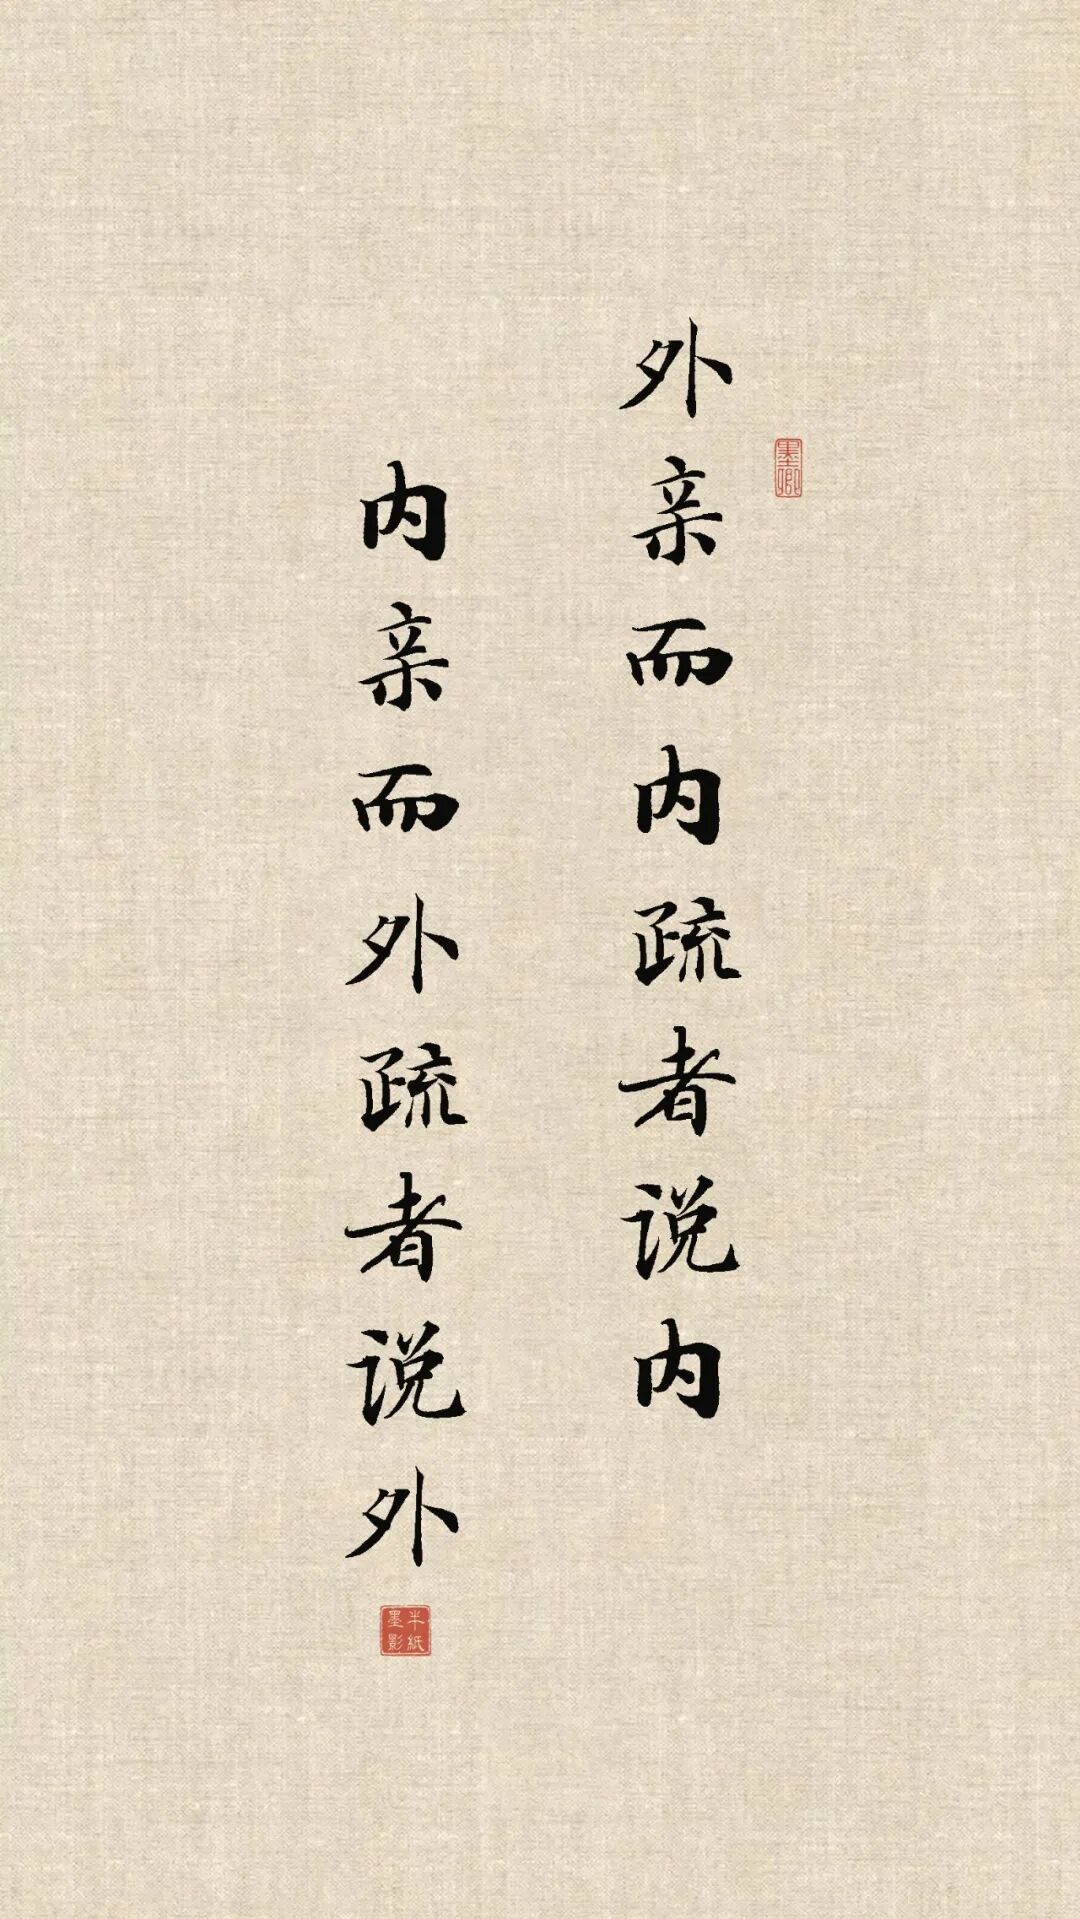 外亲而内疏者说内
内亲而外疏者说外
墨卿
半纸
墨影